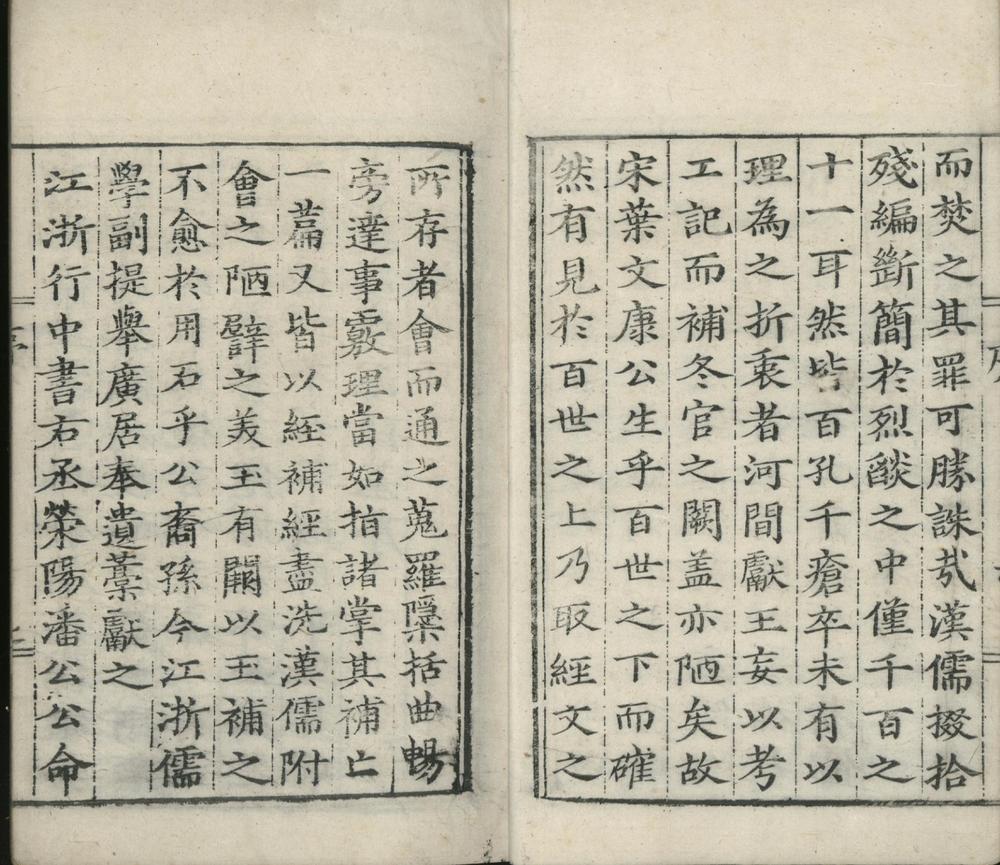 而焚之其罪可勝誅哉漢儒掇拾
殘編斷簡於烈燄之中僅千百之
十一耳然皆百孔千瘡卒未有以
理為之折衷者河間獻王妄以考
工記而補冬官之闕盖亦陋矣故
宋葉文康公生乎百世之下而確
然有見於百世之上乃取經文之
所存者會而通之蒐羅隱括曲暢
旁達事覈理當如指諸掌其補亡
一篇又皆以經補經盡洗漢儒附
會之陋譬之美玉有闕以玉補之
不愈於用石乎公裔孫今江浙儒
學副提舉廣居奉遺藁獻之
江浙行中書右丞榮陽潘公公命